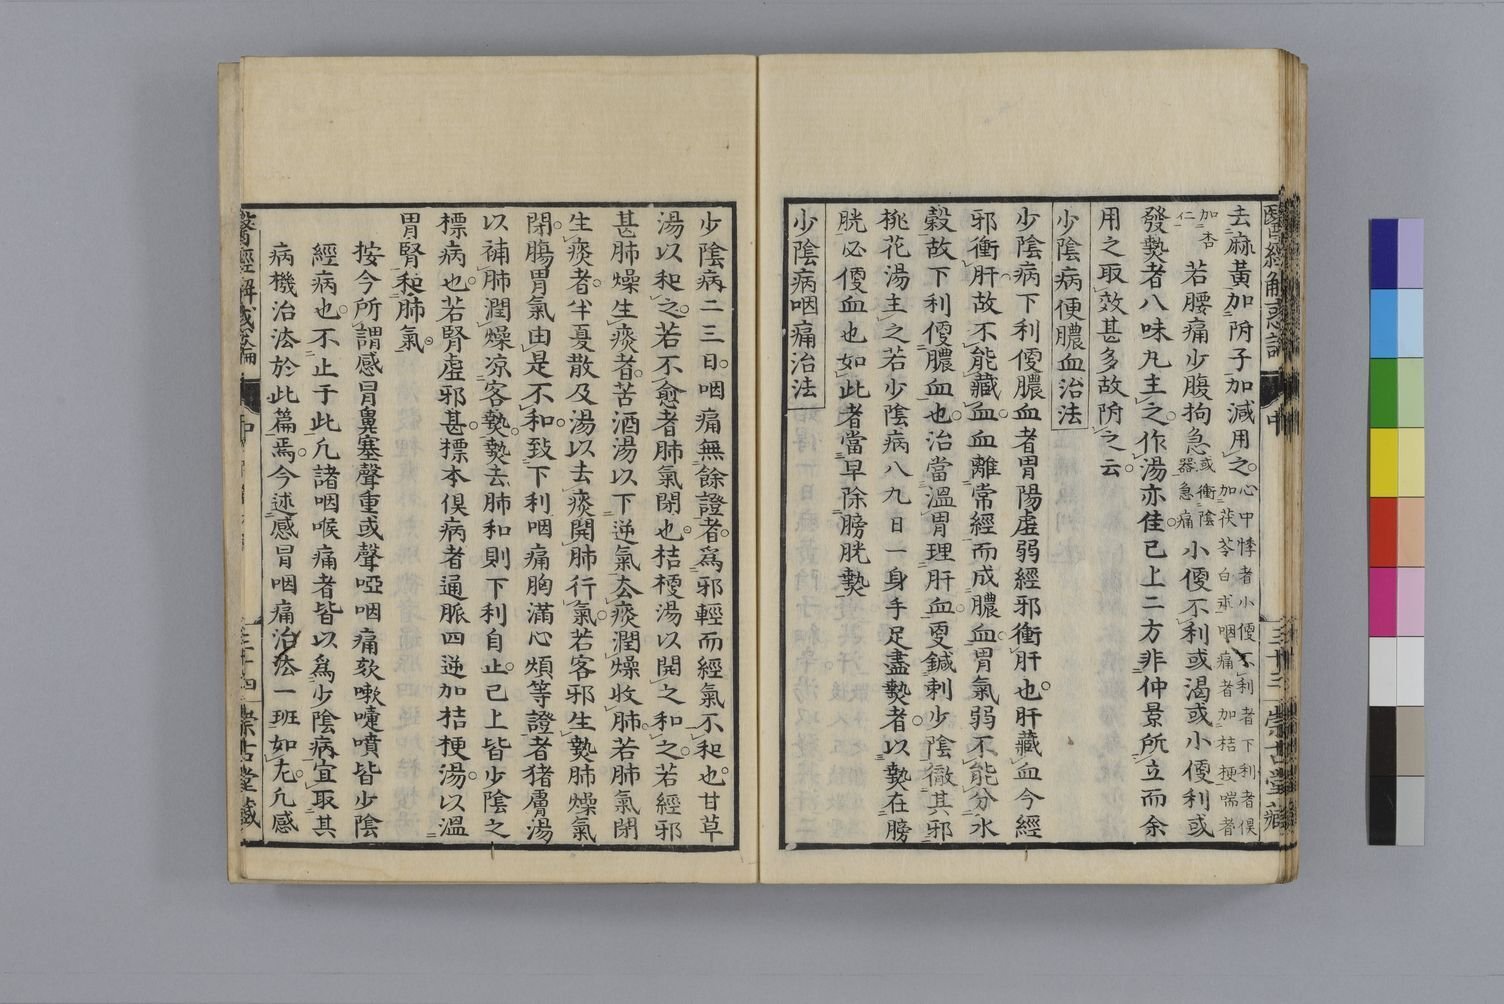 去麻黃加附子加減用之心中悸者小便不利者下利者俱加茯苓白朮咽痛者加桔梗喘者
加杏仁若腰痛少腹拘急或衝陰器急痛小便不利或渴或小便利或
發熱者八味丸主之作湯亦佳已上二方非仲景所立而余
用之取效甚多故附之云
少陰病便膿血治法
少陰病下利便膿血者胃陽虛弱經邪衝肝也肝藏血今經
邪衝肝故不能藏血血離常經而成膿血胃氣弱不能分水
穀故下利便膿血也治當溫胃理肝血更鍼刺少陰徹其邪
桃花湯主之若少陰病八九日一身手足盡熱者以熱在膀
胱必便血也如此者當早除膀胱熱
少陰病咽痛治法
醫經解惑論 中 三十三 崇古堂藏
少陰病二三日咽痛無餘證者爲邪輕而經氣不和也甘草
湯以和之若不愈者肺氣閉也桔梗湯以開之和之若經邪
甚肺燥生痰者苦酒湯以下逆氣去痰潤燥收肺若肺氣閉
生痰者半夏散及湯以去痰開肺行氣若客邪生熱肺燥氣
閉腸胃氣由是不和致下利咽痛胸滿心煩等證者猪膚湯
以補肺潤燥凉客熱熱去肺和則下利自止已上皆少陰之
標病也若腎虛邪甚標本俱病者通脈四逆加桔梗湯以溫
胃腎和肺氣
按今所謂感冒鼻塞聲重或聲啞咽痛欬嗽嚏噴皆少陰
經病也不止于此凡諸咽喉痛者皆以爲少陰病宜取其
病機治法於此篇焉今述感冒咽痛治法一班如左凡感
醫經解惑論 中 三十四 崇古堂藏